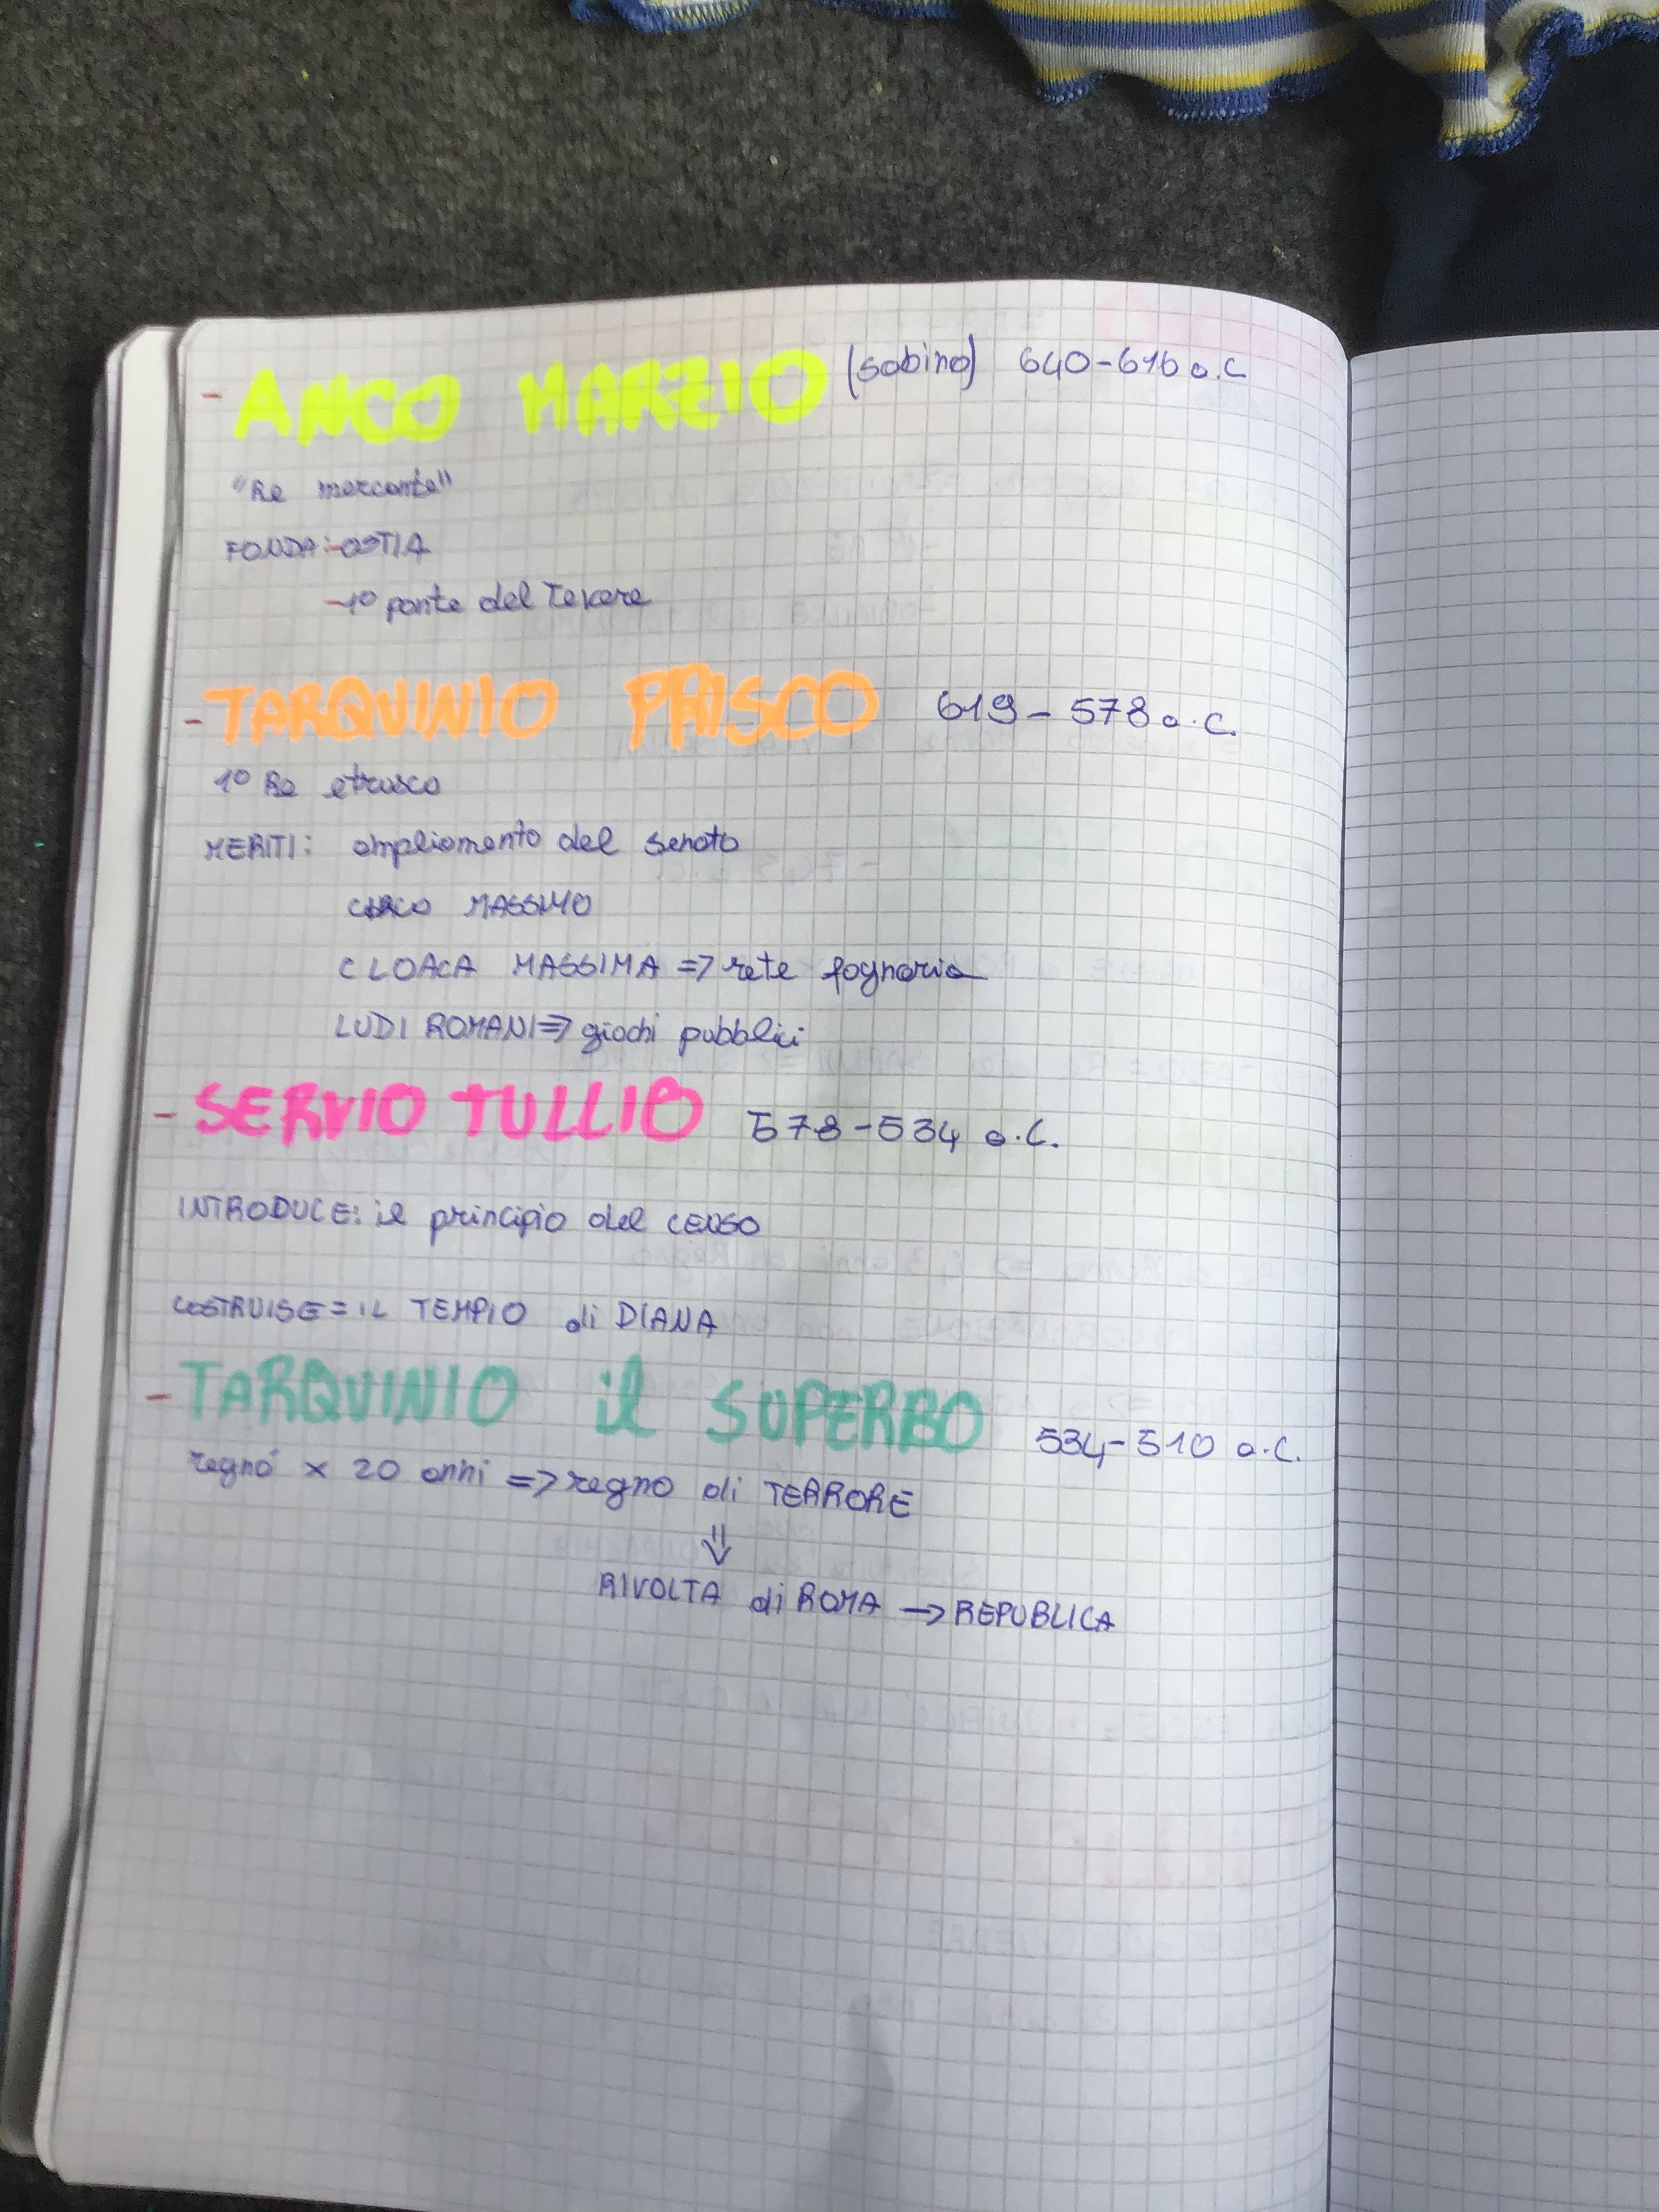 - ANCO MARZIO (sabino) 640-616 a.C
"Re mercante"
FONDA: -OSTIA
-1° ponte del Tevere
- TARQUINIO PRISCO 619-578 a.C.
1° Re etrusco
MERITI: ampliamento del senato
CIRCO MASSIMO
CLOACA MASSIMA => rete fognaria
LUDI ROMANI => giochi pubblici
- SERVIO TULLIO 578-534 a.C.
INTRODUCE: il principio del CENSO
COSTRUISE = IL TEMPIO di DIANA
- TARQUINIO il SUPERBO 534-510 a.C.
regnó x 20 anni => regno di TERRORE
⇓
RIVOLTA di ROMA -> REPUBLICA